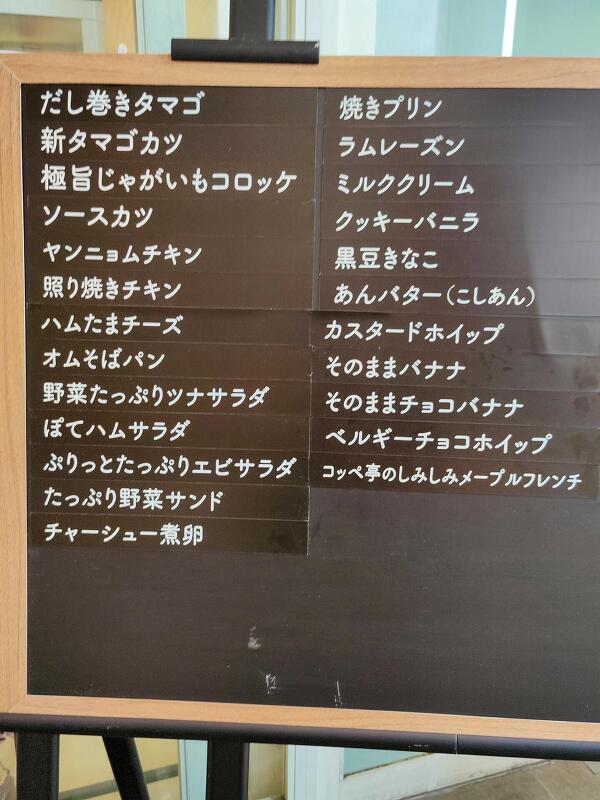 だし巻きタマゴ
新タマゴカツ
極旨じゃがいもコロッケ
ソースカツ
ヤンニョムチキン
照り焼きチキン
ハムたまチーズ
オムそばパン
野菜たっぷりツナサラダ
ぽてハムサラダ
ぷりっとたっぷりエビサラダ
たっぷり野菜サンド
チャーシュー煮卵
焼きプリン
ラムレーズン
ミルククリーム
クッキーバニラ
黒豆きなこ
あんバター(こしあん)
カスタードホイップ
そのままバナナ
そのままチョコバナナ
ベルギーチョコホイップ
コッペ亭のしみしみメープルフレンチ